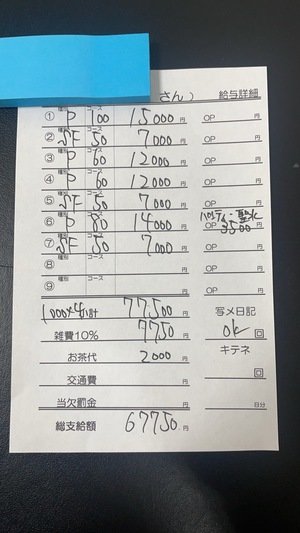 さん） 給与詳細
① 種別 P コース 100 15000円 OP 円
② 種別 SF コース 50 7000円 OP 円
③ 種別 P コース 60 12000円 OP 円
④ 種別 P コース 60 12000円 OP 円
⑤ 種別 SF コース 50 7000円 OP 円
⑥ 種別 P コース 80 14000円 OP 3500円
⑦ 種別 SF コース 50 7000円 OP 円
⑧ 種別 コース 円 OP 円
⑨ 種別 コース 円 OP 円
計 77500円 写メ日記
雑費10% 7750円 ok 回
お茶代 2000円 キテネ
交通費 円 回
当欠罰金 円 日分
総支給額 67750円